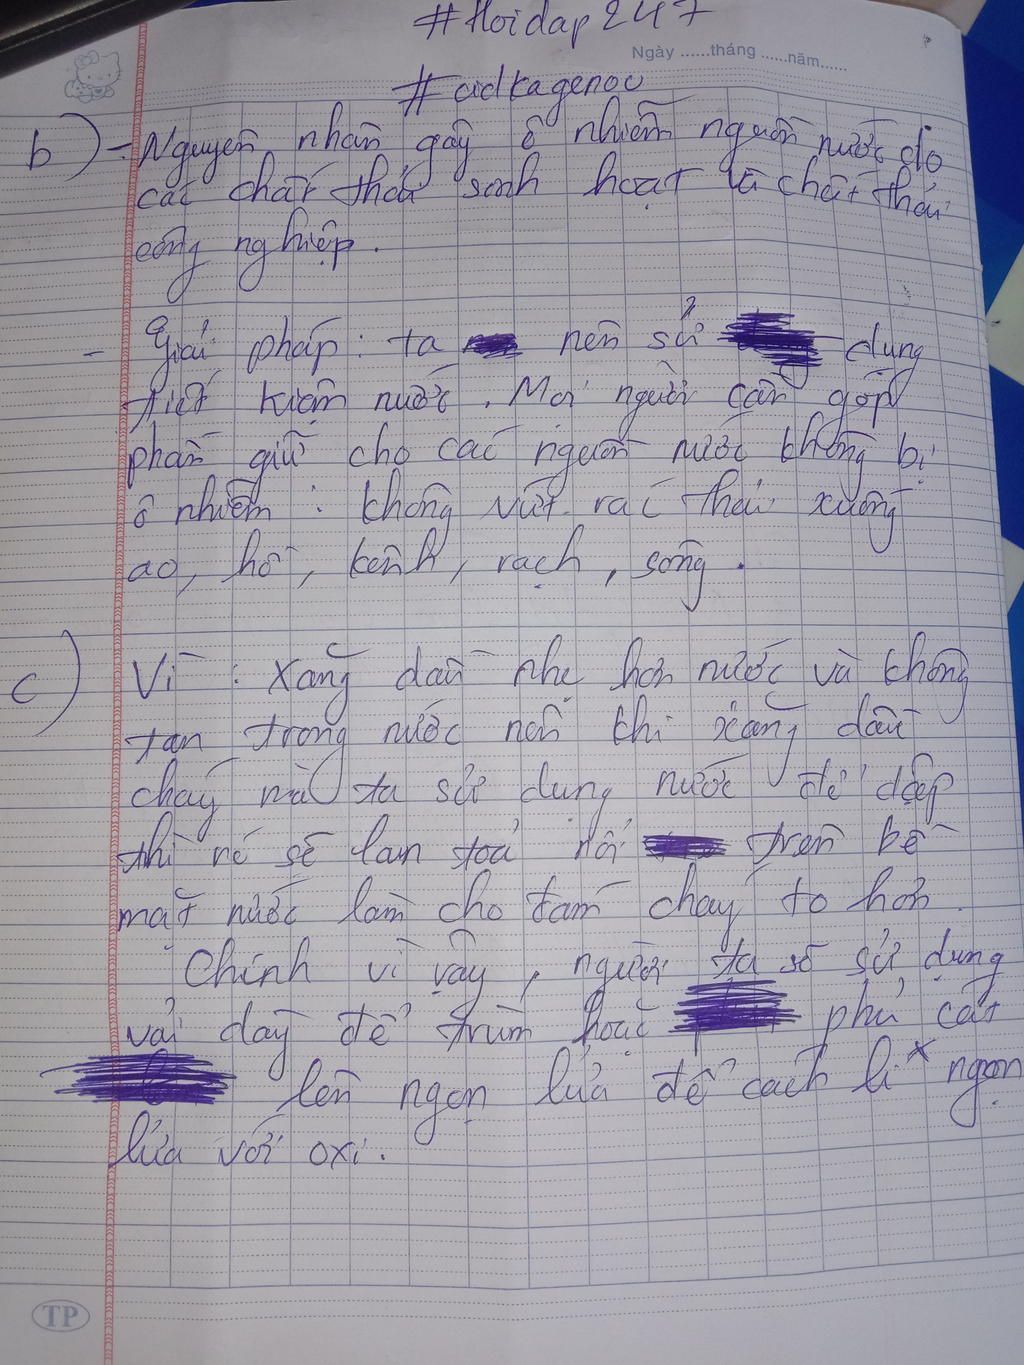 #Hoidap247
Ngày ......tháng ......năm......
#cidkagenou
b) - Nguyên nhân gây ô nhiễm nguồn nước do
các chất thải sinh hoạt và chất thải
công nghiệp.
- Giải pháp: ta nên sử dụng
tiết kiệm nước. Mọi người cần góp
phần giữ cho các nguồn nước không bị
ô nhiễm: không vứt rác thải xuống
ao, hồ, kênh, rạch, sông.
c) Vì: Xăng dầu nhẹ hơn nước và không
tan trong nước nên khi xăng dầu
cháy mà ta sử dụng nước để dập
thì nó sẽ lan toả nổi trên bề
mặt nước làm cho đám cháy to hơn.
Chính vì vậy, người ta sẽ sử dụng
vải dày để trùm hoặc phủ cát
lên ngọn lửa để cách li ngọn
lửa với oxi.
TP